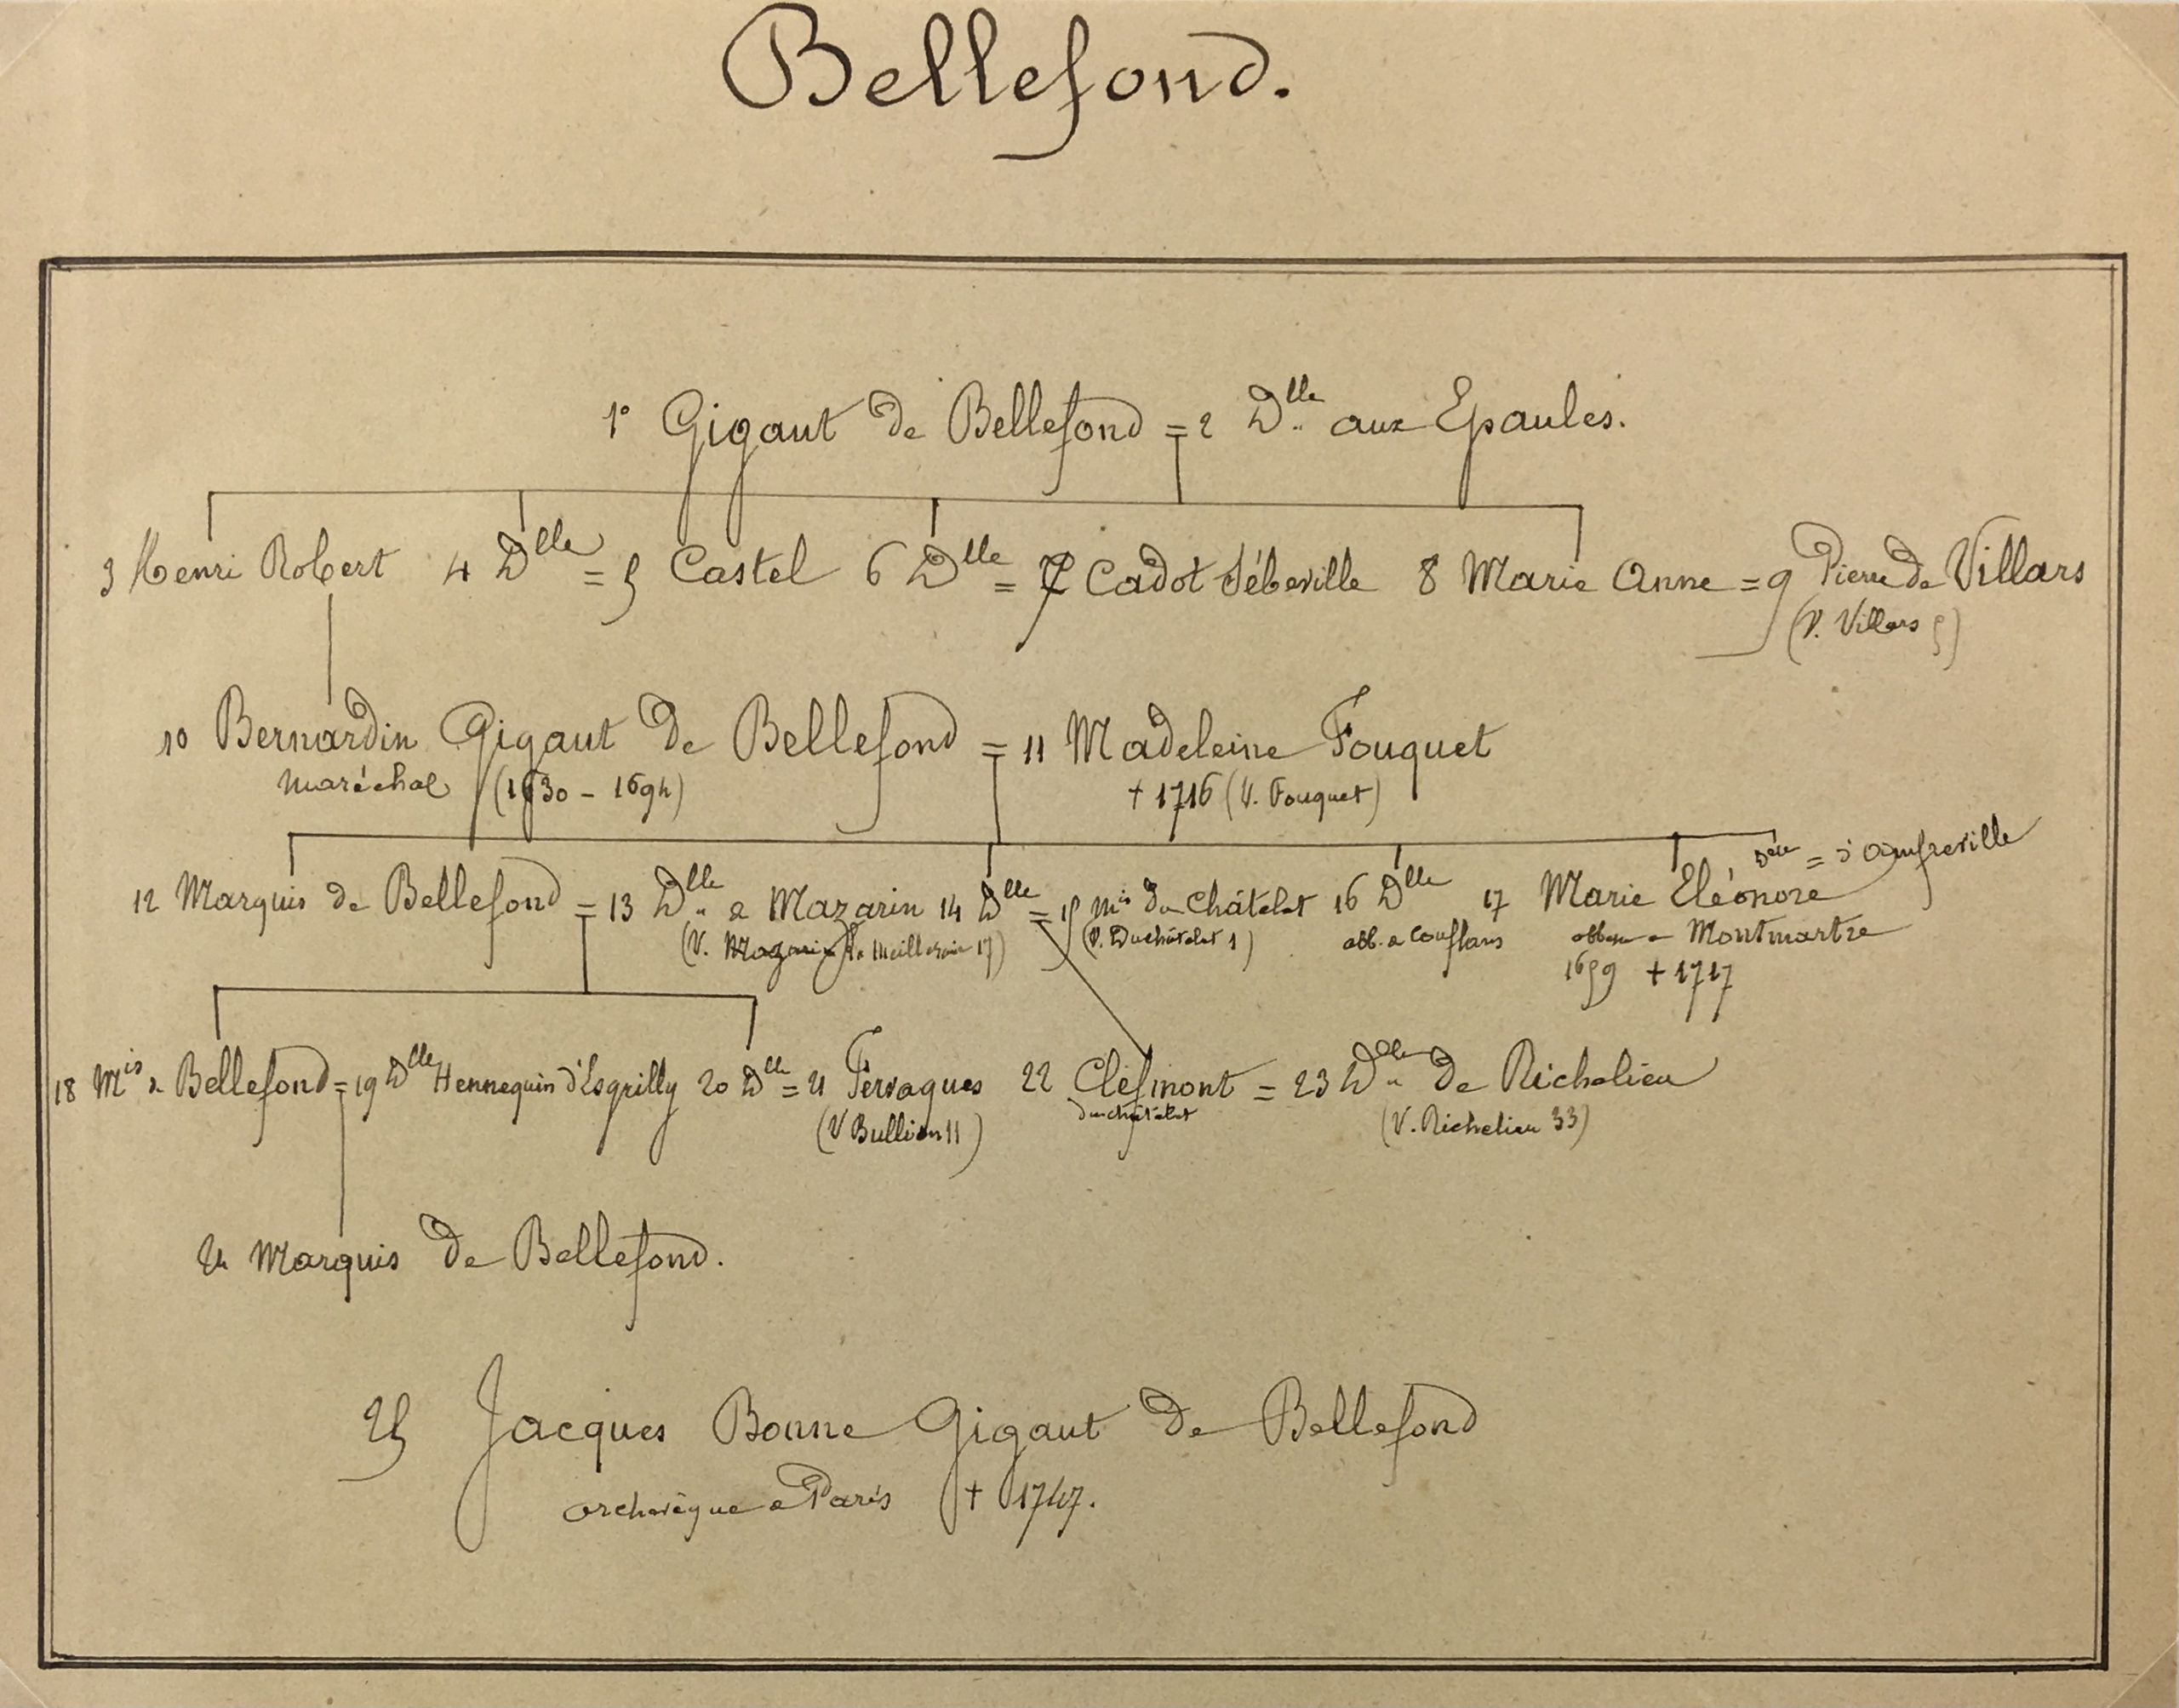 Bellefond.
1° Gigaut de Bellefond = 2 Dlle aux Epaules.
3 Henri Robert 4 Dlle = 5 Castel 6 Dlle = 7 Cadot Sébeville 8 Marie Anne = 9 Pierre de Villars
(V. Villars 5)
10 Bernardin Gigaut de Bellefond = 11 Madeleine Fouquet
Maréchal (1630 - 1694) † 1716 (V. Fouquet)
Delle = d'Amfreville
12 Marquis de Bellefond = 13 Dlle de Mazarin 14 Dlle = 15 Mis du Châtelet 16 Dlle 17 Marie Eléonore
(V. Mazarin la Meilleraie 17) (V. Duchâtelet 1) abb. de Conflans abbesse de Montmartre
1659 † 1717
18 Mis de Bellefond = 19 Dlle Hennequin d'Esgrilly 20 Dlle = 21 Fervaques 22 Clefmont = 23 Dlle de Richelieu
(V Bullion 11) duchâtelet (V. Richelieu 33)
24 Marquis de Bellefond.
25 Jacques Bonne Gigaut de Bellefond
archevêque de Paris † 1747.